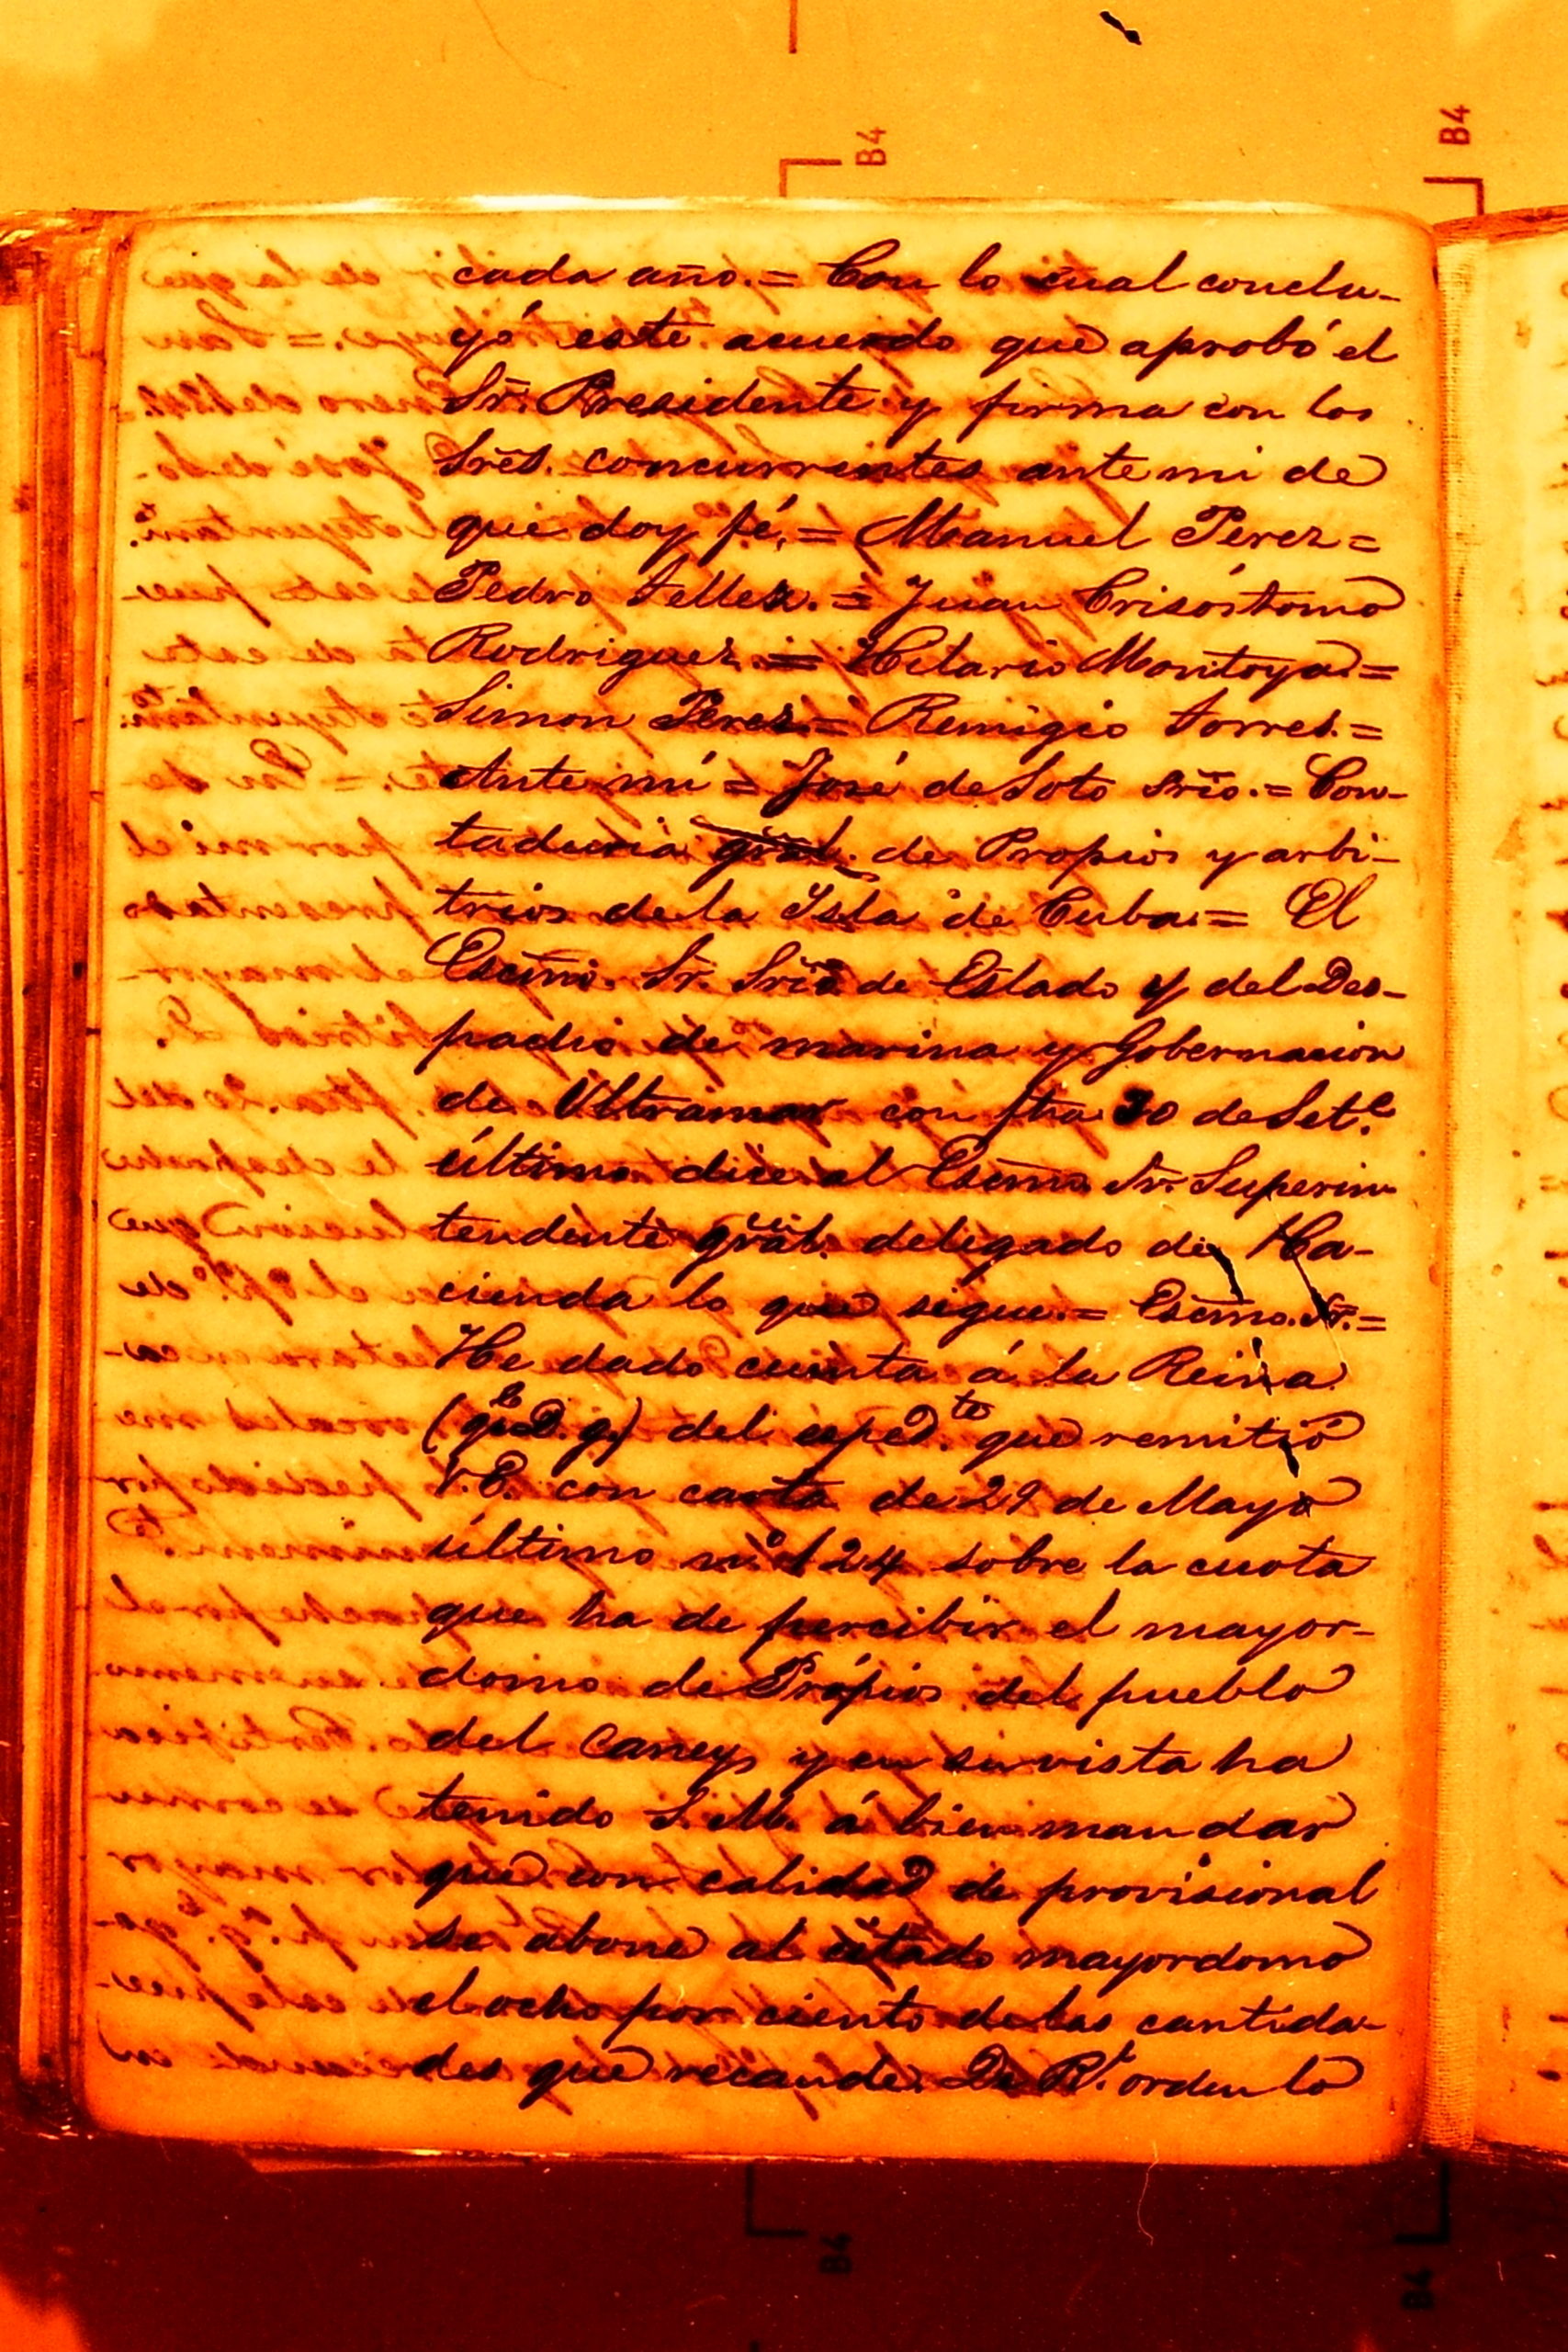 B4
B4
cada año.= Con lo cual conclu-
yó este acuerdo que aprobó el
Sr. Presidente y firma con los
Sres. concurrentes ante mi de
que doy fé.= Manuel Perez=
Pedro Tellez.= Juan Crisóstomo
Rodriguez.= Hilario Montoya=
Simon Perez= Remigio Torres.=
Ante mí= José de Soto Srio.= Con-
taduria gral. de Propios y arbi-
trios de la Ysla de Cuba.= El
Escmo. Sr. Srio de Estado y del Des-
pacho de marina y Gobernacion
de Ultramar con fha 30 de Set.e
último dice al Escmo. Sr. Superin
tendente gral. delegado de Ha-
cienda lo que sigue.= Escmo. Sr.=
He dado cuenta á la Reina
(q.e D. g.) del esped.te que remitió
V.E. con carta de 29 de Mayo
último n.o 124 sobre la cuota
que ha de percibir el mayor-
domo de Própios del pueblo
del Caney, y en su vista ha
tenido S.M. á bien mandar
que con calidad de provisional
se abone al citado mayordomo
el ocho por ciento de las cantida-
des que recaude. De R.l orden lo
B4
B4